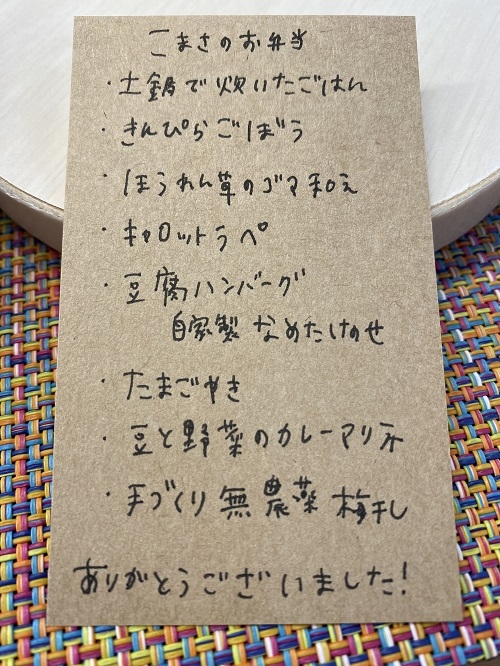 こまさのお弁当
・土鍋で炊いたごはん
・きんぴらごぼう
・ほうれん草のゴマ和え
・キャロットラペ
・豆腐ハンバーグ
自家製 なめたけのせ
・たまごやき
・豆と野菜のカレーマリネ
・手づくり 無農薬 梅干し
ありがとうございました!